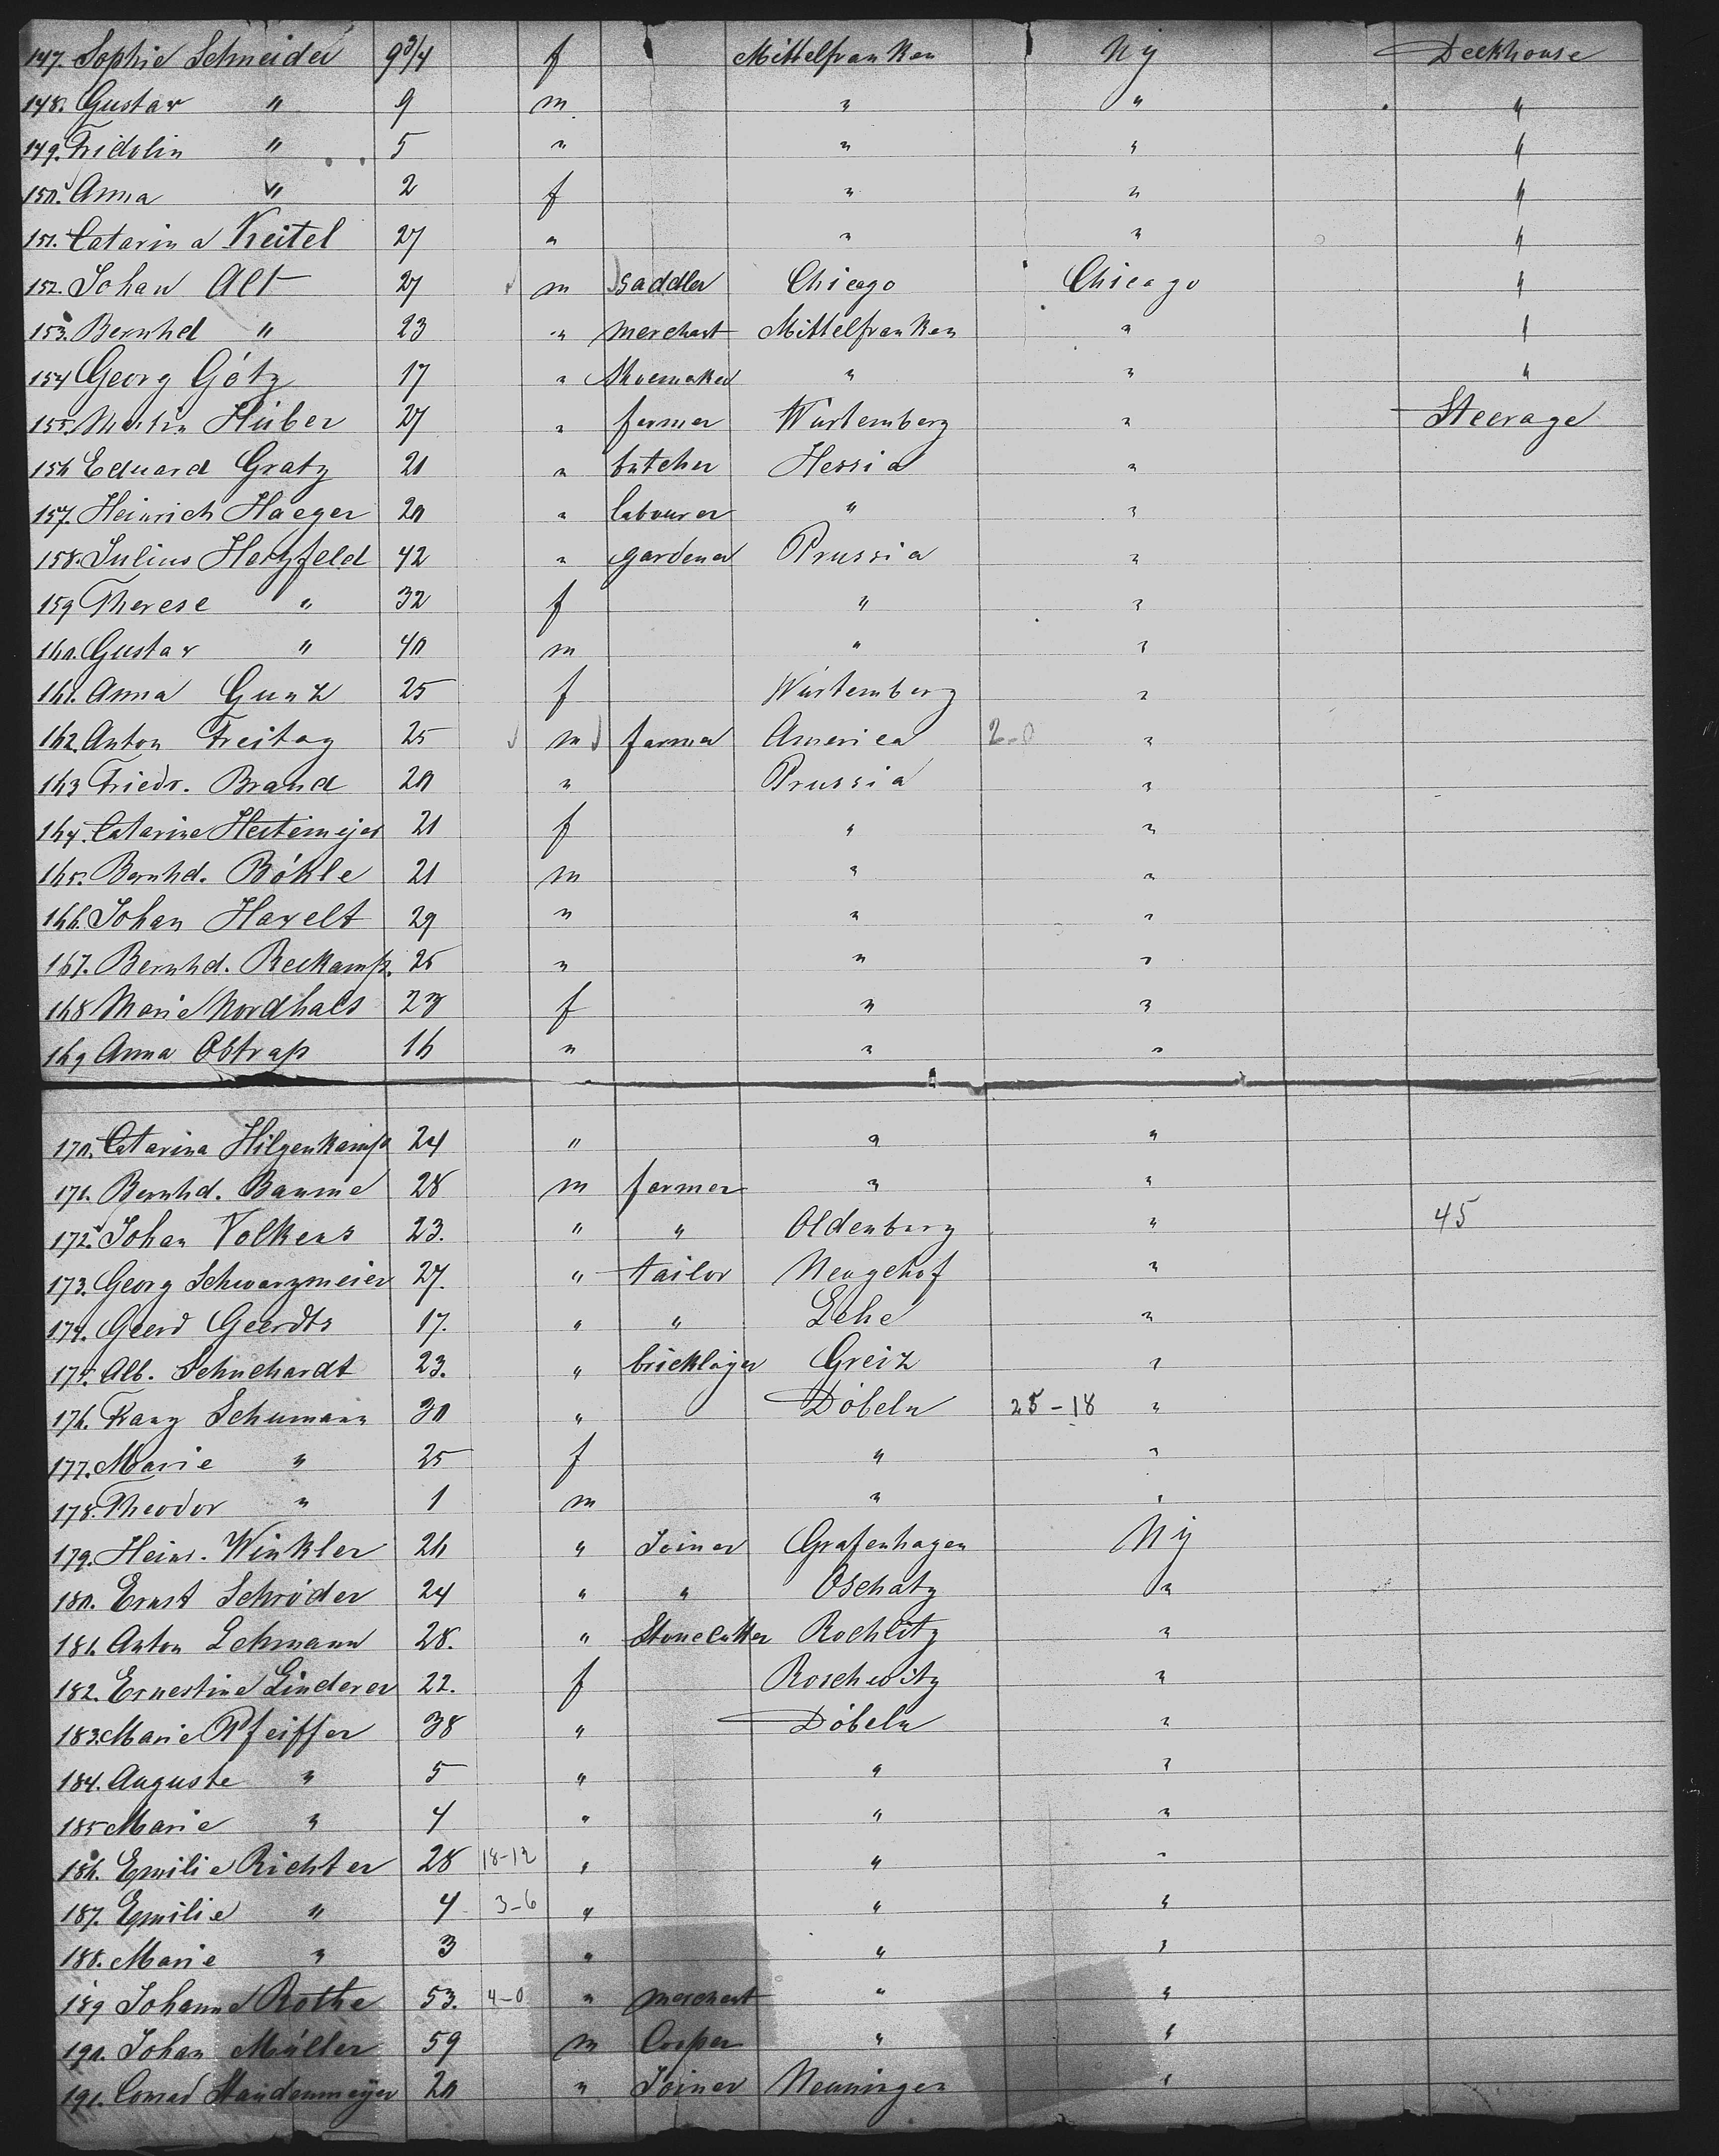 147. Sophie Schneider 9 3/4 f Mittelfranken Ny Deckhouse
148. Gustav " 9 m " " "
149. Fridolin " 5 " " " "
150. Anna " 2 f " " "
151. Catarina Keitel 27 " " " "
152. Johan Alt 27 m Saddler Chicago Chicago "
153. Bernhd " 23 " merchant Mittelfranken " "
154 Georg Götz 17 " Shoemaker " " "
155. Martin Huber 27 " farmer Würtemberg " Steerage
156 Eduard Gratz 21 " butcher Hessia "
157. Heinrich Haeger 20 " labourer " "
158. Julius Herzfeld 42 " gardener Prussia "
159 Therese " 32 f " "
160. Gustav " 40 m " "
161. Anna Gunz 25 f Würtemberg "
162. Anton Freitag 25 m farmer America 2-0 "
163 Friedr. Brand 20 " Prussia "
164. Catarine Hestemejer 21 f " "
165. Bernhd. Bökle 21 m " "
166. Johan Havelt 29 " " "
167. Bernhd. Reckamp. 25 " " "
168 Marie Nordhals 23 f " "
169 Anna Ostrap 16 " " "
170. Catarina Hilgenkamp 24 " " "
171. Bernhd. Baume 28 m farmer " "
172. Johan Volkens 23. " " Oldenburg " 45
173. Georg Schwarzmeier 27. " tailor Neugehof "
174. Geerd Geerdts 17. " " Lehe "
175. Alb. Schuchardt 23. " bricklayer Greiz "
176. Franz Schumann 30 " Döbeln 25-18 "
177. Marie " 25 f " "
178. Theodor " 1 m " "
179. Heinr. Winkler 26 " Joiner Grafenhagen Ny
180. Ernst Schröder 24 " " Oschatz "
181. Anton Lehmann 28. " Stonecutter Rochlitz "
182. Ernestine Linderer 22. f Roschwitz "
183. Marie Pfeiffer 38 " Döbeln "
184. Auguste " 5 " " "
185 Marie " 4 " " "
186. Emilie Richter 28 18-12 " " "
187. Emilie " 4 3-6 " " "
188. Marie " 3 " " "
189 Johanne Rothe 53. 4-0 " merchant " "
190. Johan Müller 59 m Cooper " "
191. Conrad Staudenmeijer 20 " Joiner Nenningen "